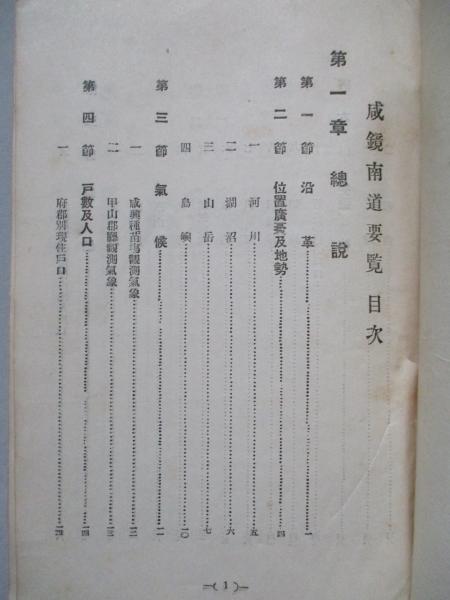 咸鏡南道要覧目次
第一章 總說
第一節 沿革……一
第二節 位置廣袤及地勢……四
一 河川……五
二 湖沼……六
三 山岳……七
四 島嶼……一〇
第三節 氣候……一二
一 咸興種苗場觀測氣象……一二
二 甲山郡廳觀測氣象……一三
第四節 戶數及人口……一四
一 府郡別現住戶口……一四
(1)